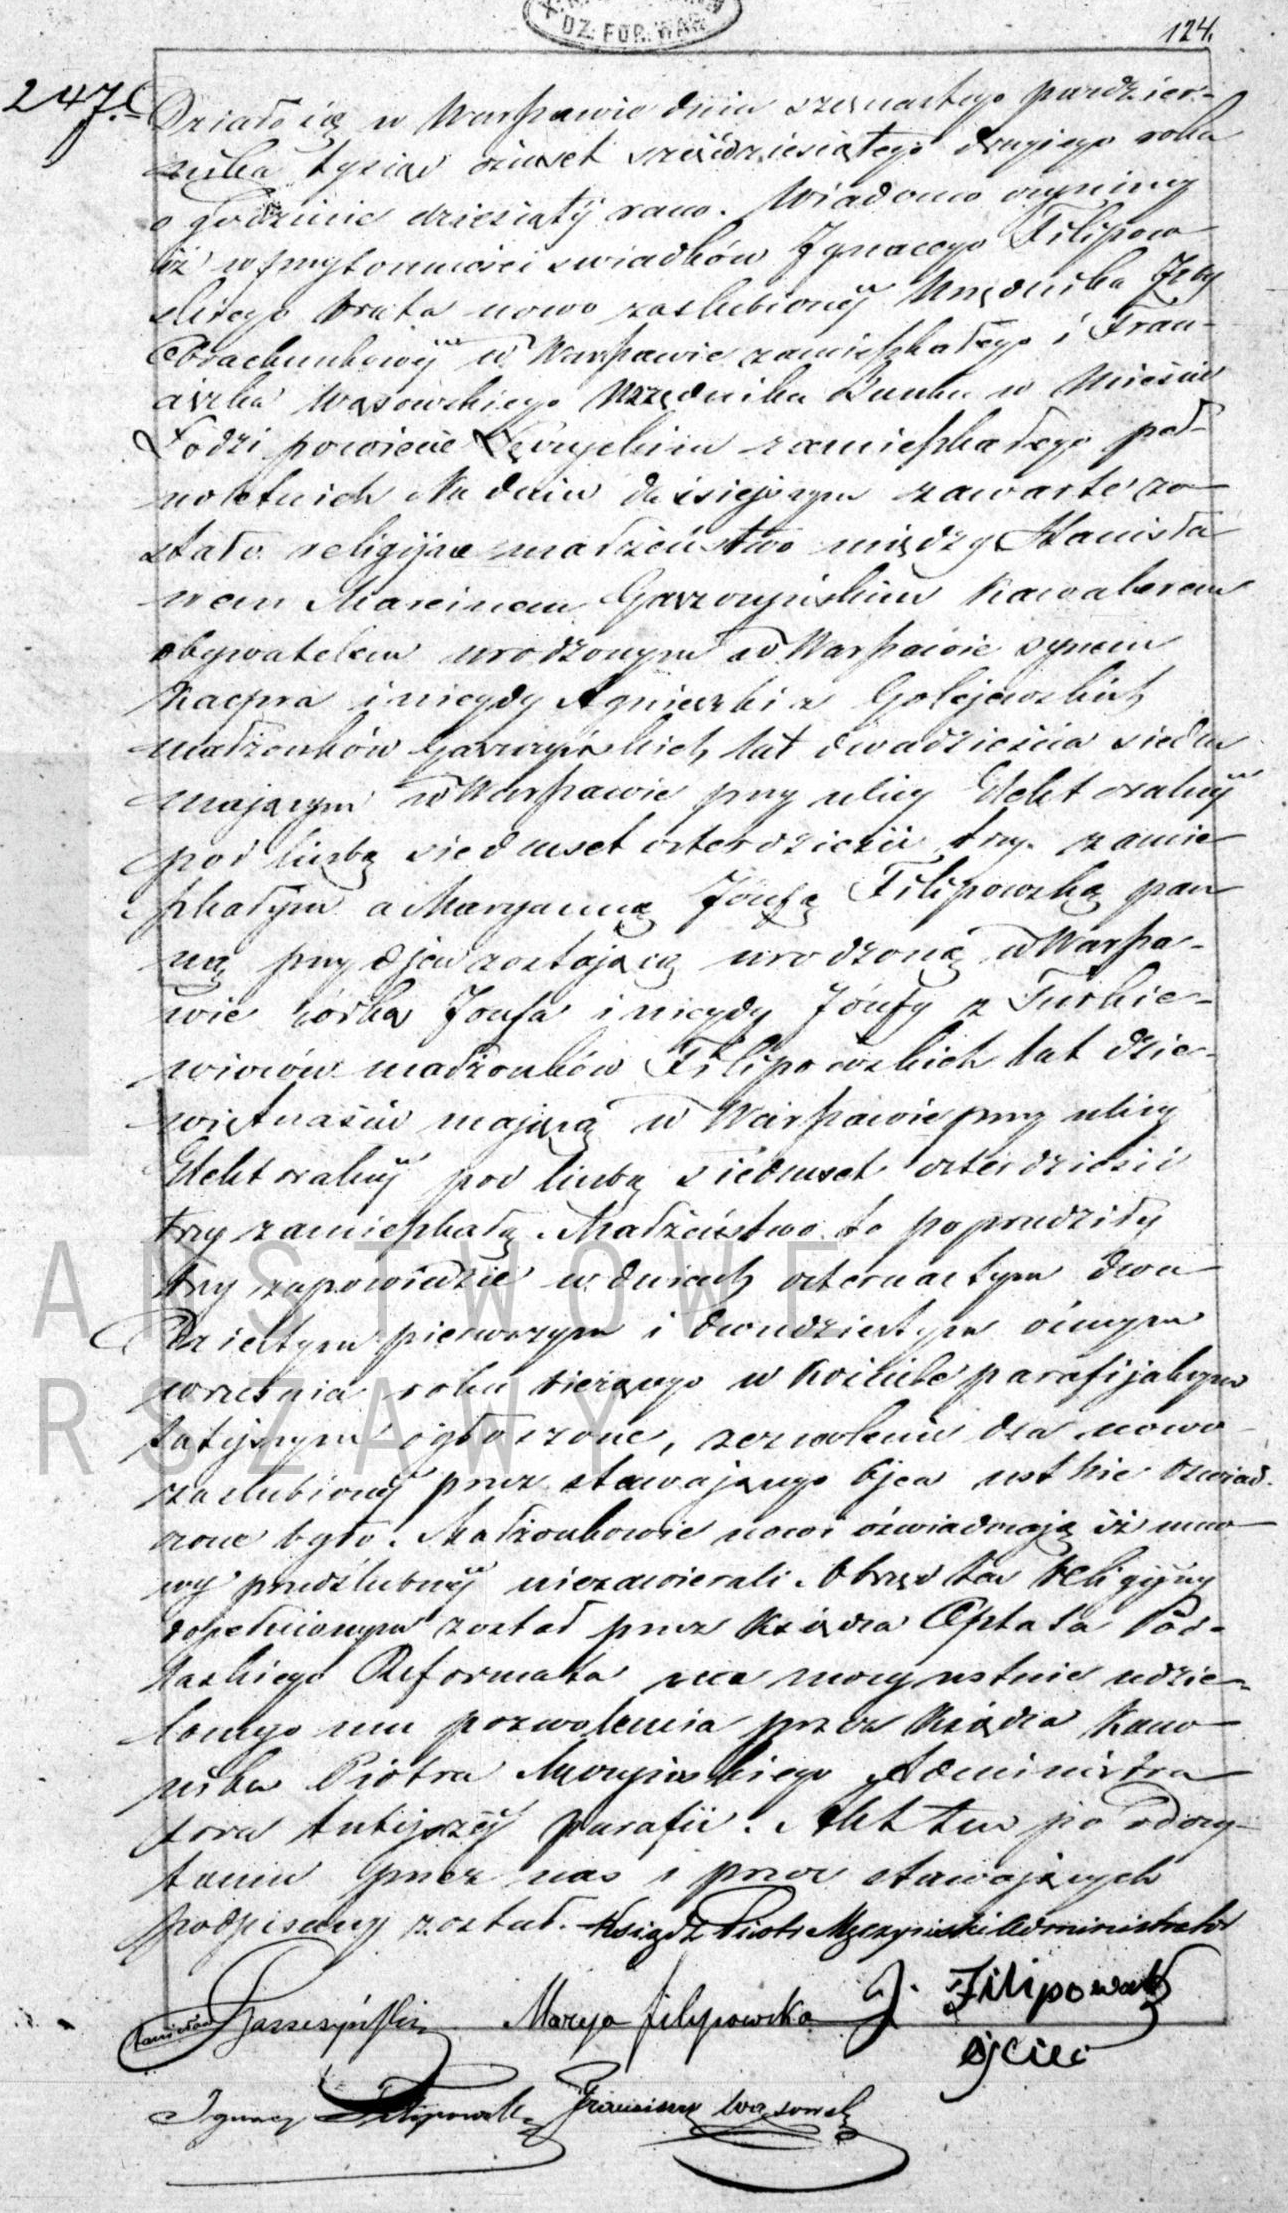 DZ. FOR. WAR
124.
247.
Działo się w Warszawie dnia szesnastego paździer-
nika tysiąc ośmset sześćdziesiątego drugiego roku
o godzinie dziesiątéj rano. Wiadomo czynimy
iż w przytomności świadków Ignacego Filipow
skiego brata nowo zaslubionéj Urzędnika Izby
Obrachunkowéj w Warszawie zamieszkałego i Fran-
ciszka Wąsowskiego Urzędnika Banku w Mieście
Łodzi powiecie Łęczyckim zamieszkałego peł-
noletnich Na dniu dzisiejszym zawarte zo
stało religijne małżeństwo między Stanisła
wem Marcinem Garczyńskim Kawalerem
obywatelem urodzonym w Warszawie synem
Kacpra i niegdy Agnieszki z Golejewskich
małżonków Garczyńskich, lat dwadzieścia siedm
mającym w Warszawie przy ulicy Elektoralnéj
pod liczbą siedmset czterdzieści trzy zamie
szkałym a Maryanną Józefą Filipowską pan
ną przy ojcu zostającą urodzoną w Warsza-
wie córką Józefa i niegdy Józefy z Turkie-
wiczów małżonków Filipowskich lat dzie-
więtnaście mającą w Warszawie przy ulicy
Elektoralnéj pod liczbą siedmset czterdzieści
trzy zamieszkałą. Małżeństwo to poprzedziły
trzy zapowiedzie w dniach czternastym dwu
dziestym pierwszym i dwudziestym ósmym
września roku bieżącego w Kościele parafijalnym
tutejszym ogłoszone, zezwolenie dla nowo
zaślubionéj przez stawającego Ojca ustnie oświad-
czone było. Małżonkowie nowi oświadczają iż umo
wy przedślubnéj niezawierali. Obrzęd ten religijny
dopełnionym został przez Księdza Optata Pod-
laskiego Reformata na mocy ustnie udzie-
lonego mu pozwolenia przez Księdza Kano
nika Piotra Męczyńskiego Administra
tora tutejszéj parafii. Akt ten po odczy-
taniu przez nas i przez stawających
podpisany został. Ksiądz Piotr Męczyński Administrator
Stanisław Garczyński Marya Filipowska J. Filipowski
ojciec
Ignacy Filipowski Franciszek Wąsowski
ARSTWOWE
RSZAWY